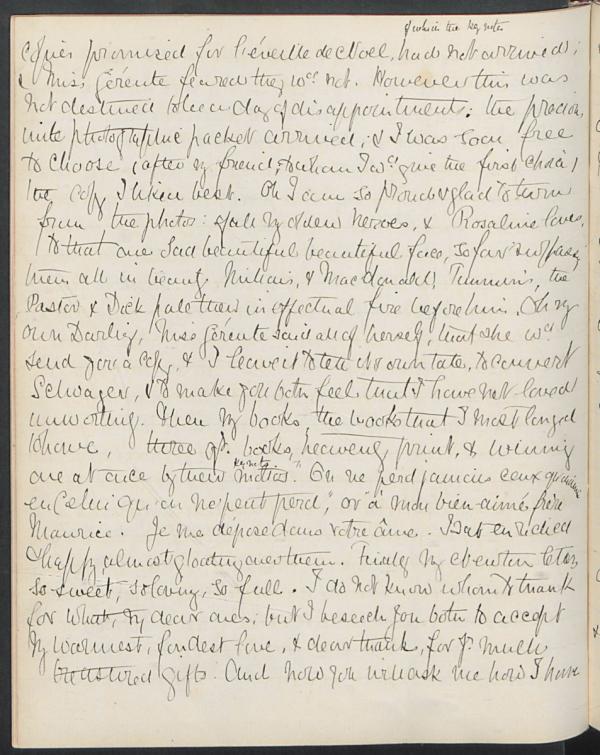 of which the key notes
copies promised for l'éveille de Noel, had not arrived;
& Miss Gérente feared they wd. not. However this was
not destined to be a day of disappointments: the precious
little photographic packet arrived, & I was soon free
to choose (after my friend, to whom I wd. give the first choice)
the copy I liken best. Oh I am so proud & glad to turn
from the photos: of all my olden heroes, & Rosaline loves,
to that one sad beautiful beautiful face, so far surpassing
them all in beauty. Millais, & MacDonald, the
Pastor & Dick pale their ineffectual fire before him. Oh my
own Darling, Miss Gérente said all of herself, that she wd.
send you a copy, & I leave it to tell its own tale, to convert
Schwager, & to make you both feel that I have not loved
unworthily. Then my books, the books that I most longed
to have, three of books, heavenly print, & winning
one at once by their mottos "On ne perd jamais ceux qu'on aime
en Celui qu'on ne peut perd", or à mon bien-aimé frère
Maurice. Je me dépose dans votre âme. I sat enriched
& happy almost gloating over them. Finally my letter
so sweet, so loving, so full. I do not know whom to thank
for what, my dear ones, but I beseech you both to accept
my warmest, fondest love, & dear thanks, for yr. much
treasured gifts. And now you will ask me how I have